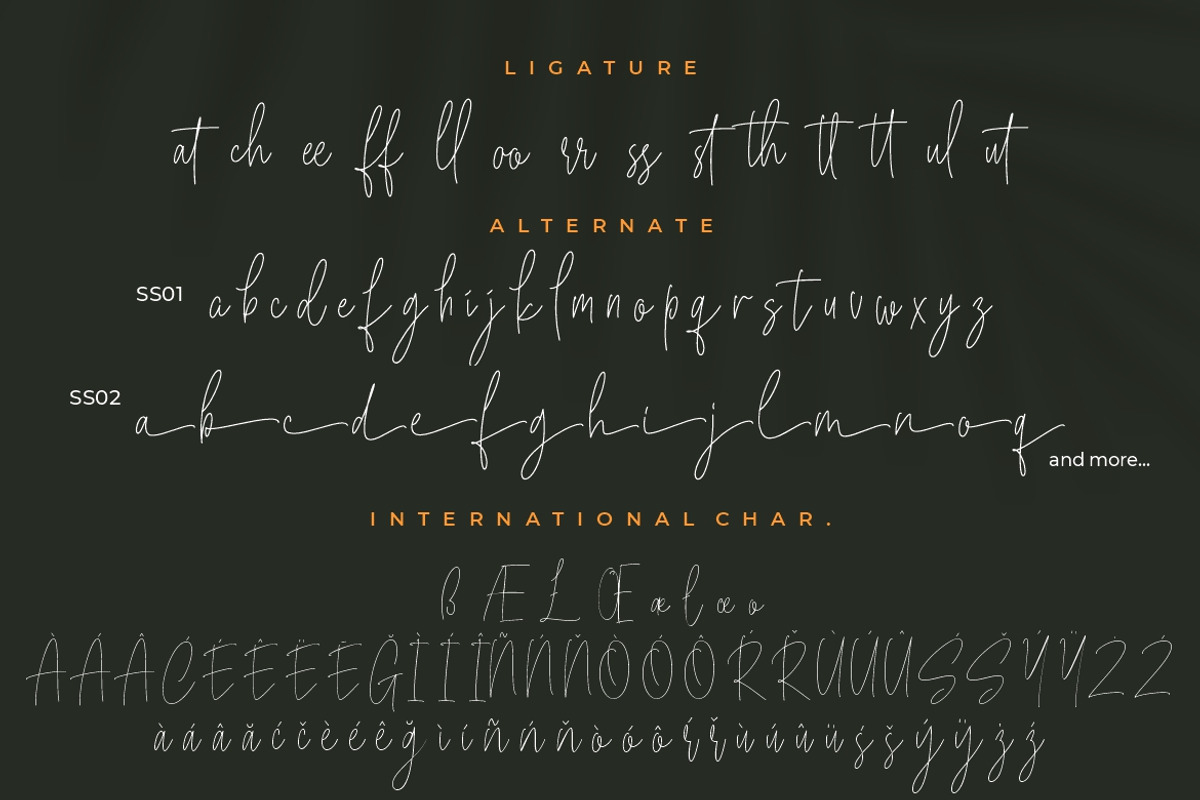 LIGATURE
at ch ee ff ll oo rr ss st th tt tt ul ut
ALTERNATE
SS01 a b c d e f g h i j k l m n o p q r s t u v w x y z
SS02 a b c d e f g h i j l m n o q
and more...
INTERNATIONAL CHAR.
ß Æ Ł Œ æ ł œ
À Á Â Ñ Ń Ň Ò Ó Ô Ù Ú Û Ś Ý Ÿ
à á â ă ć č è é ê ğ ì í ñ ń ň ò ó ô ŕ ř ù ú û ü ś š ý ÿ ż ź